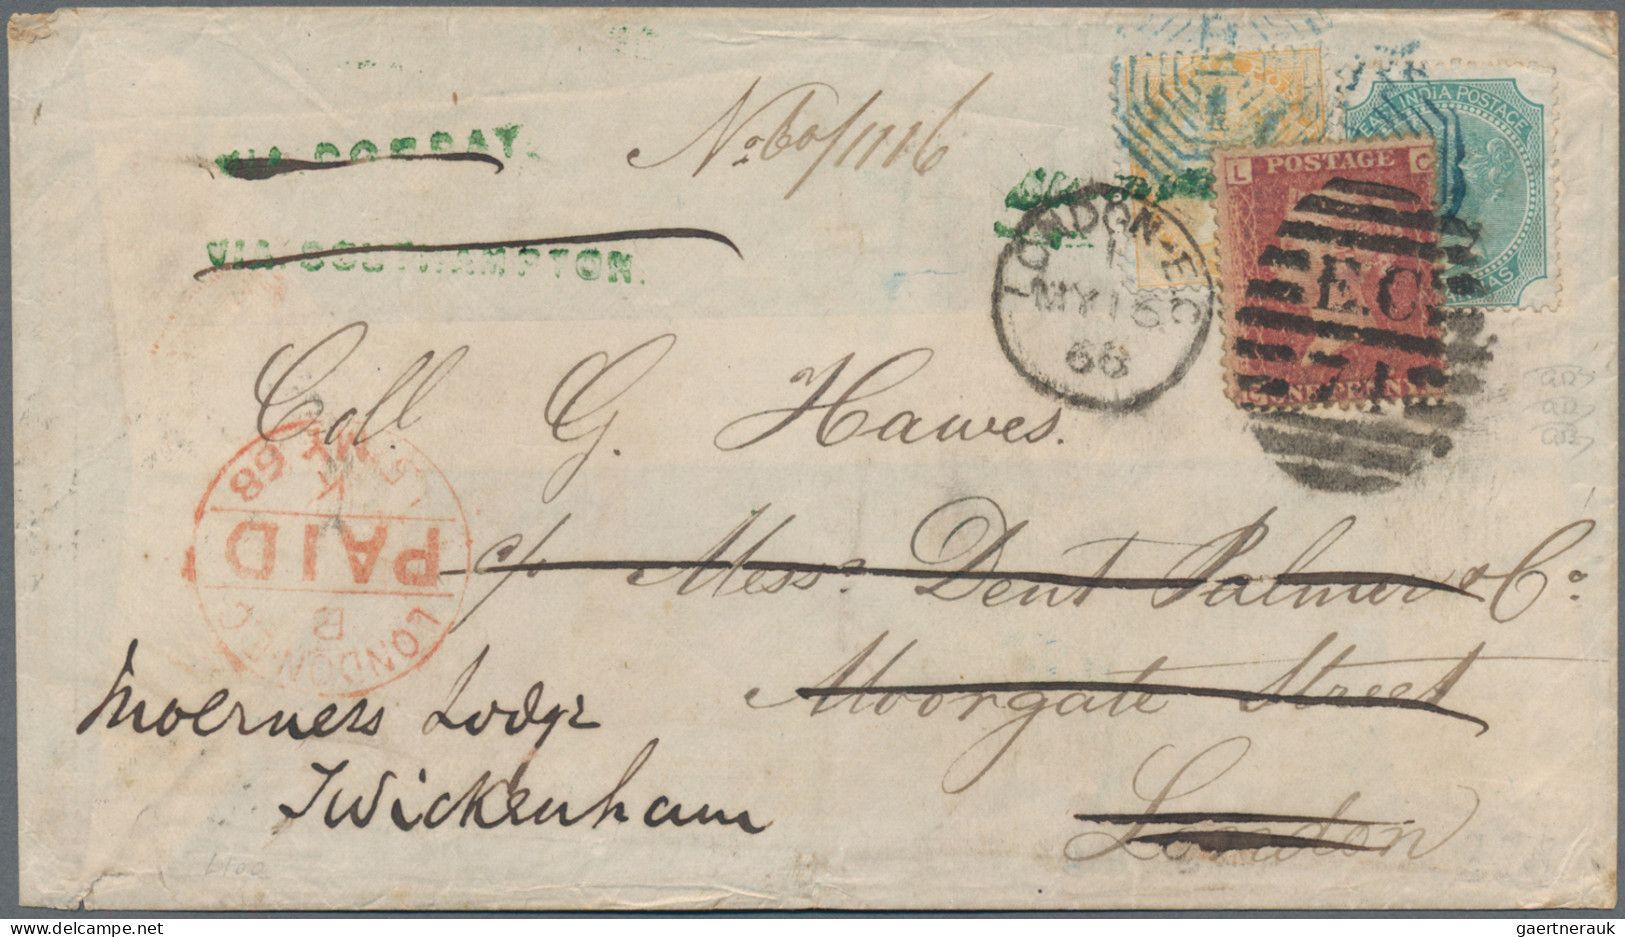 VIA BOMBAY.
No 60/1116
VIA SOUTHAMPTON.
1
INDIA POSTAGE
L POSTAGE C
LONDON-E.C
MY 16
68
E.C
71
ONE PENNY
Coll G. Hawes.
LONDON E C
B
PAID
K
MY 68
c/o Messrs Dent Palmer & Co.
Moorgate Street
London
Moerness Lodge
Twickenham
L100
gaertnerauk